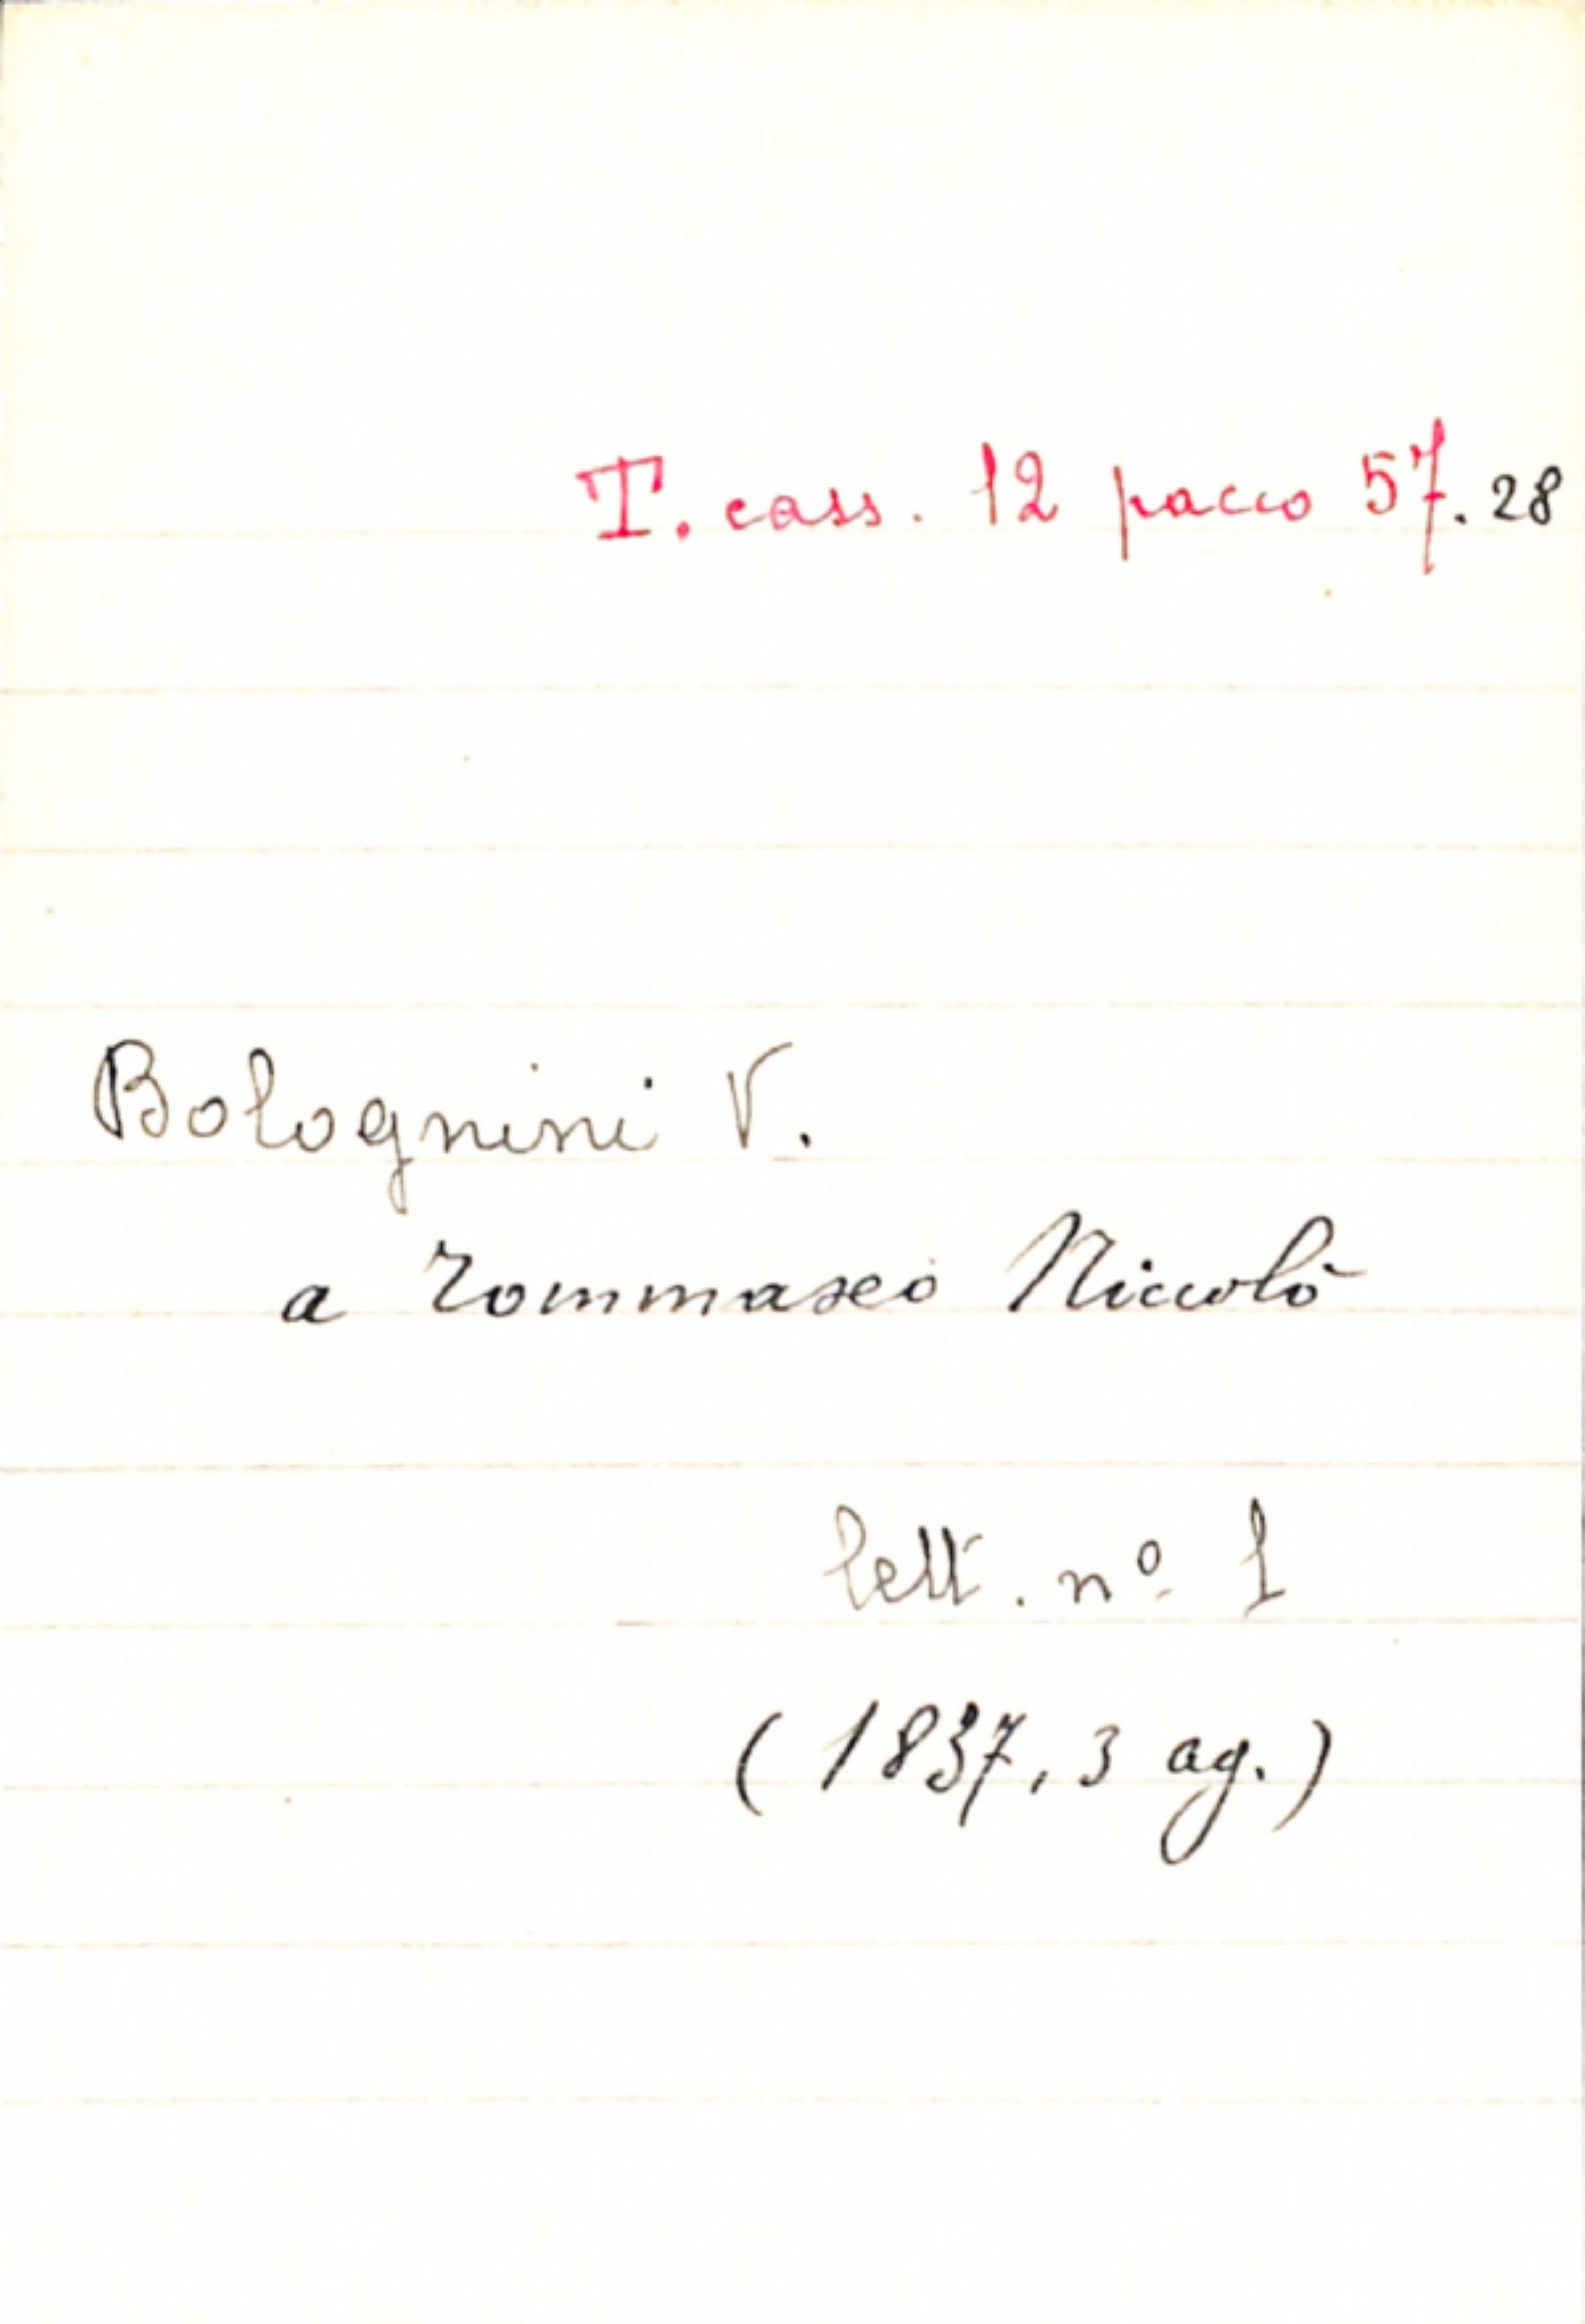 T. cass. 12 pacco 57. 28
Bolognini V.
a Tommaseo Niccolò
lett. nº 1
(1837, 3 ag.)